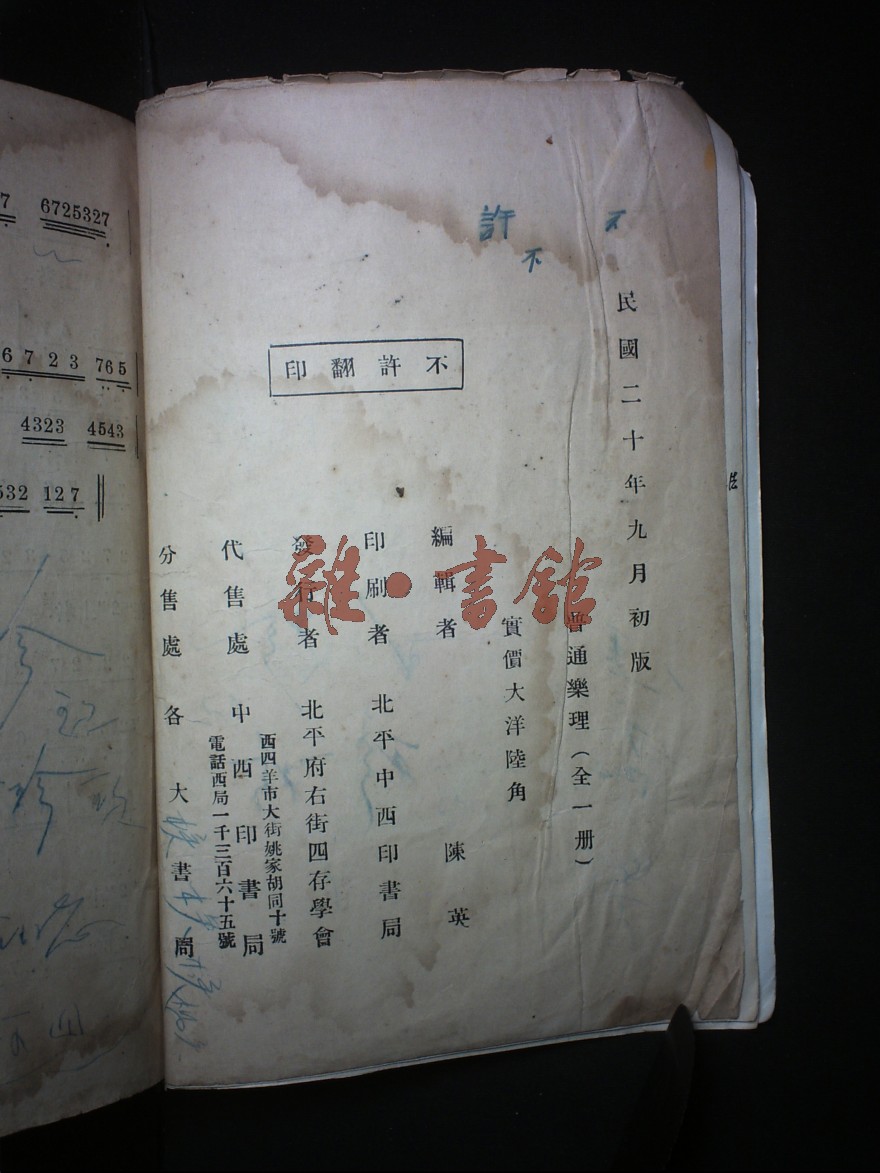 不許翻印
民國二十年九月初版
普通樂理（全一册）
實價大洋陸角
編輯者 陳英
印刷者 北平中西印書局
發行者 北平府右街四存學會
西四羊市大街姚家胡同十號
代售處 中西印書局
電話西局一千三百六十五號
分售處 各大書局
許 不
不
雜·書館
7 6725327
6 7 2 3 7 6 5
4323 4543
532 127